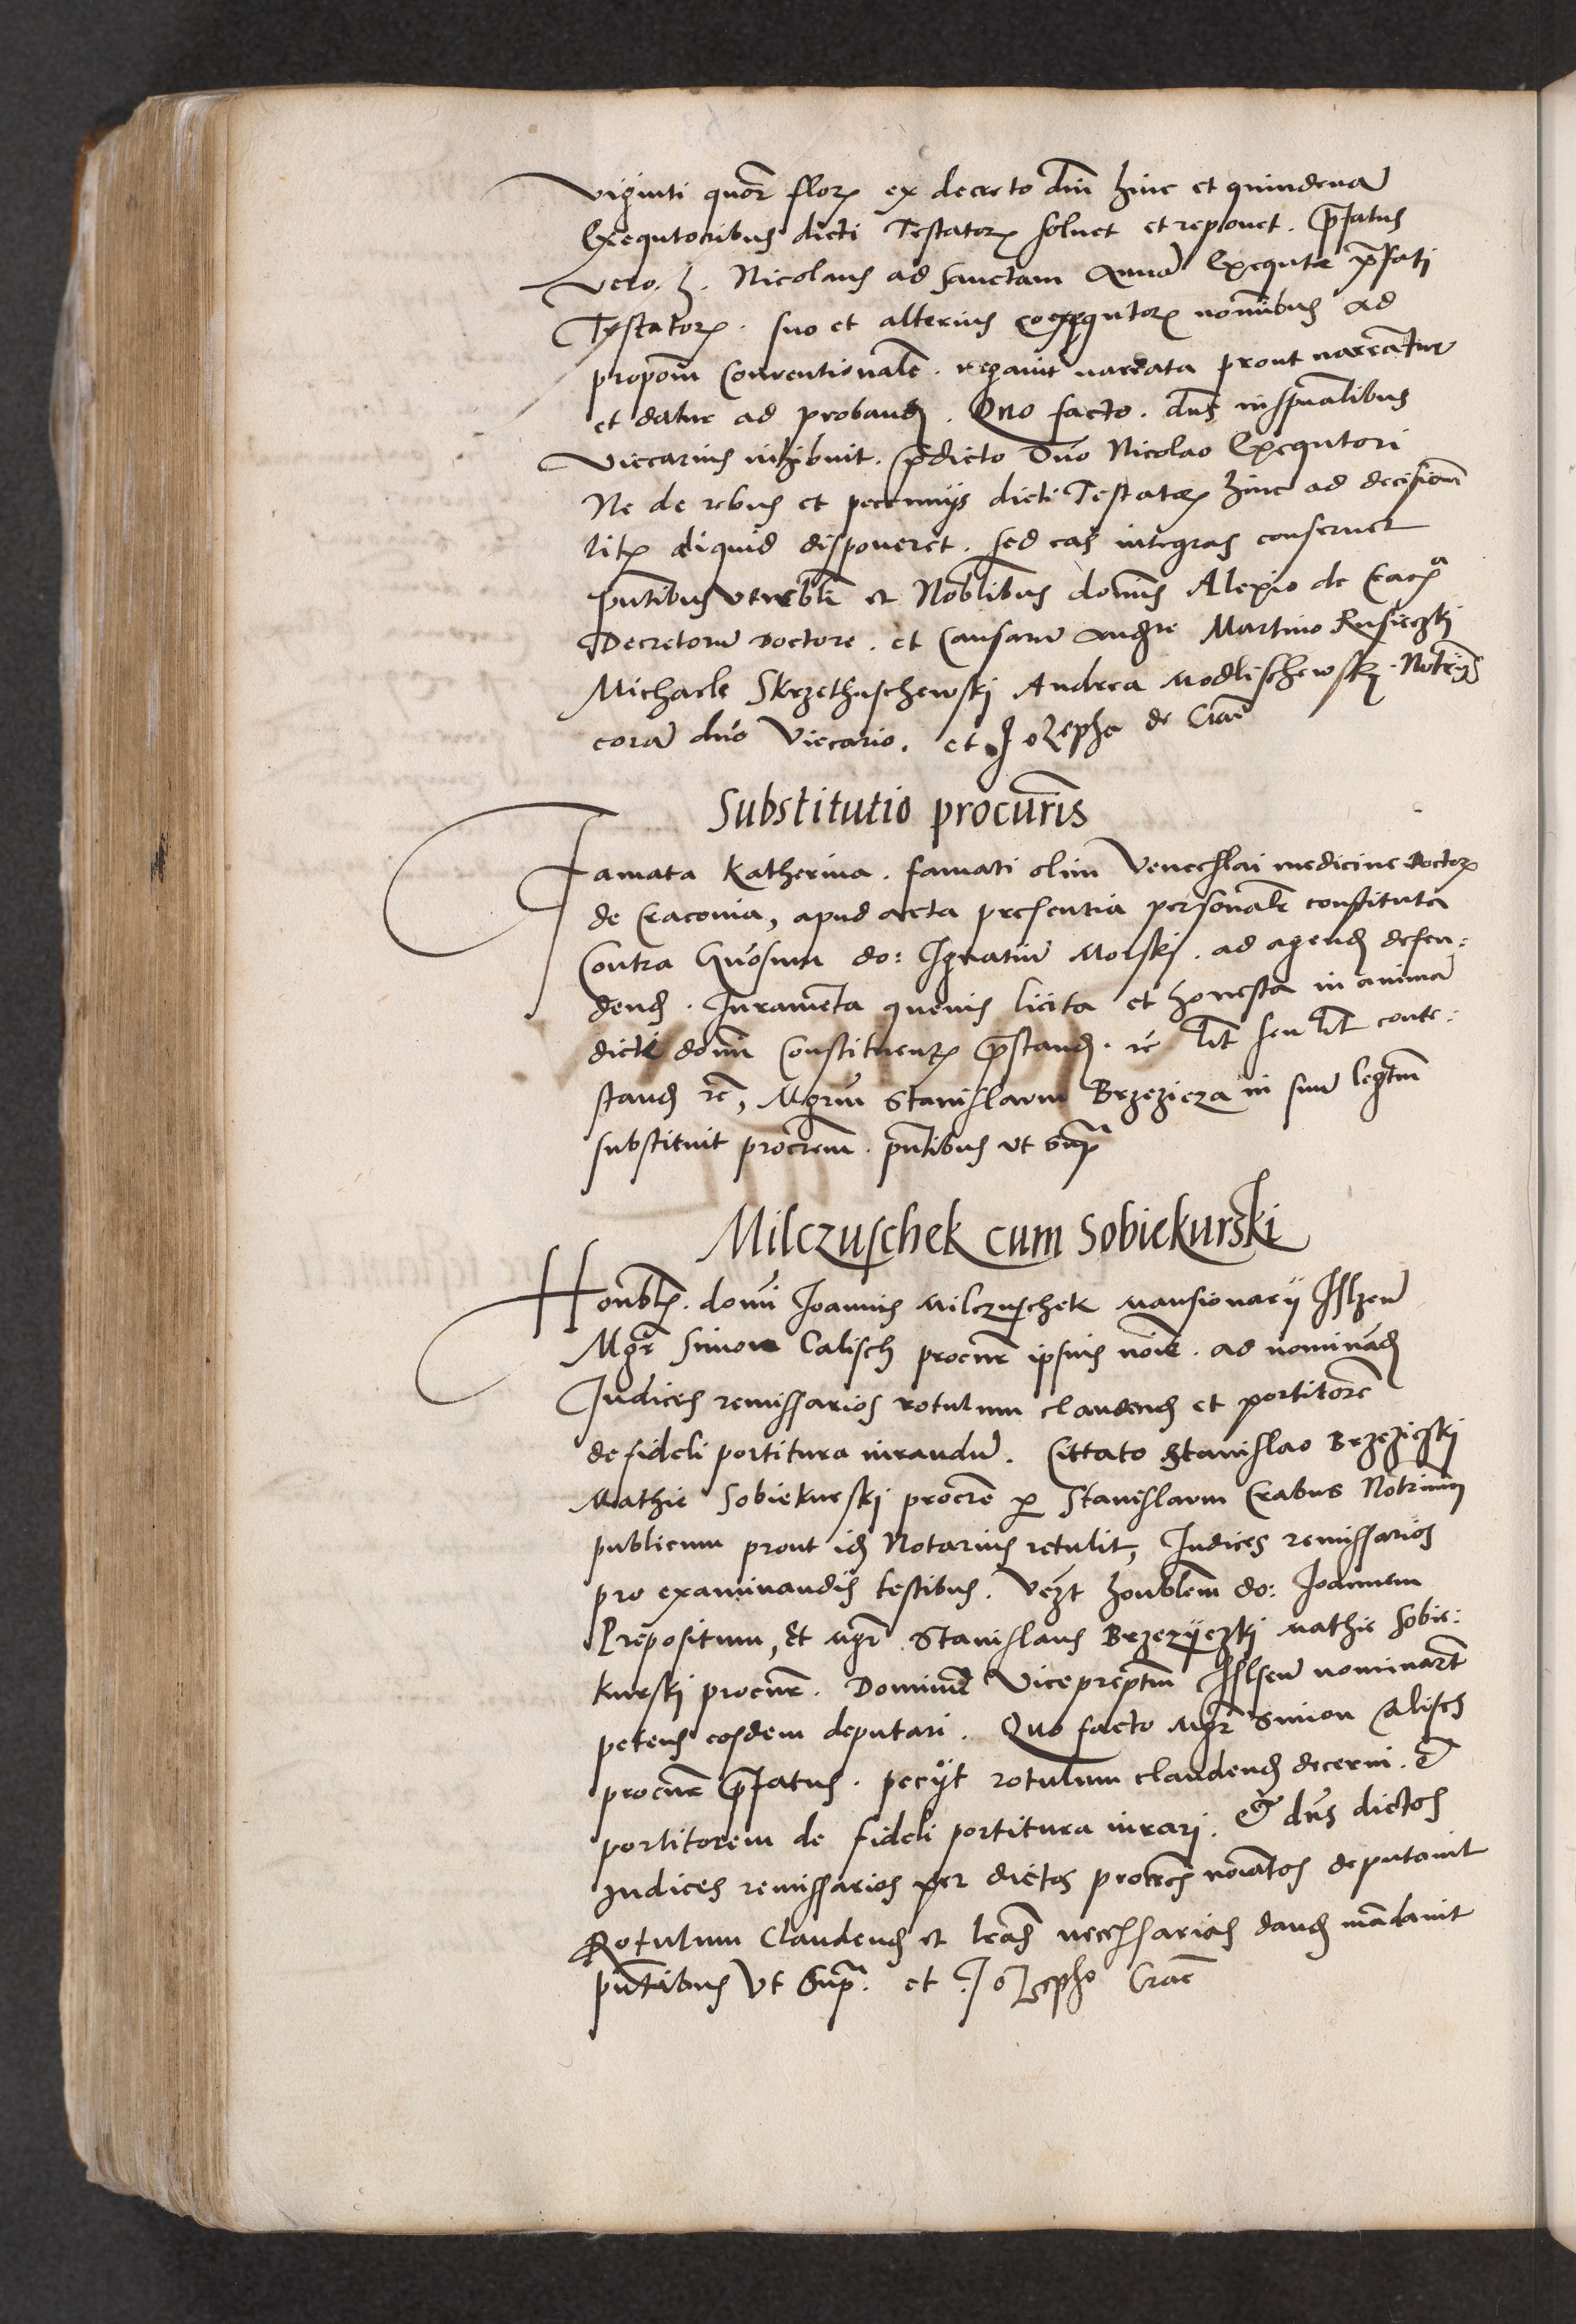 viginti quor̃ florꝝ ex decreto dnĩ hinc et quindenã
Exequtoribus dicti Testatorꝭ solvet et reponet. p̃fatus
vero. h. Nicolaus ad sanctam Annã Exequtor p̃fati
Testatorꝭ. suo et alterius coexequtorꝭ nomĩbus ad
proponm̃ Conventionalẽ. negavit narrata prout narrãtur
et datur ad probandꝫ. Quo facto. dnũs in spũalibus
Viccarius inhibuit. p̃dicto Dnõ Nicolao Exequtori
Ne de rebus et pecuniis dicti Testatorꝭ hinc ad decisionẽ
litꝭ aliquid disponeret. sed eas integras conservet
pñtibus venerbl̃i et Noblĩbus domĩs Alexio de Cracꝭa
Decretorũ Doctore. et Causarũ Auditore Martino Rusieczki
Michaele Skrzethuschewski Andrea Modlischewskj. Notrĩjs
corã dnõ Viccario. et Jozepho de Crac̃
Substitutio procur̃is
Famata Katherina. famati olim Venceslai medicine Doctorꝭ
de Craconia, apud acta presentia personalr̃ constituta
Contra Gñosum do: Ignatiũ Molskj. ad agendꝫ defen:
dendꝫ. Iuramenta quevis licita et honesta in animã
dicte domĩ Constituentꝭ p̃standꝫ. rẽ lit̃ seu lit̃ conte:
standꝫ rẽ, Mgr̃um Stanislaum Brzezicza in suũ legtm̃
substituit procr̃em. pñtibus ut sup̃
Milczuschek cum Sobiekurski
Honblꝭ. domĩ Joannis Milczuschek Mansionarij Ilzeñ
Mgr̃ Simon Calisch procur̃ ipsius noĩe. ad nominãdꝫ
Judices remissarios rotulum claudendꝫ et portitorẽ
de fideli portitura iurandũ. Cittato Stanislao Brzeziczkj
Mathie Sobiekurskj procr̃e p Stanislaum Crabus Notriũm
publicum prout idꝫ Notarius retulit, Judices remissarios
pro examinandis testibus. Vezt honblẽm do: Joannem
Prepositum, et Mgr̃ Stanislaus Brzezyczkj Mathie Sobie:
kurski procur̃. Dominũ Viceprepm̃ Ilseñ nominarũt
petens eosdem deputari. Quo facto Mgr̃ Simon Calisch
procur̃ p̃fatus. pecijt rotulum claudendꝫ decerni. et
portitorem de fideli portitura iurari. Et dnũs dictos
Judices remissarios per dictos procr̃es noĩatos deputavit
Rotulum Claudendꝫ et lrãs necessarias dandꝫ mãdavit
pñtibus Ut Sup̃. et Jozepho Crac̃